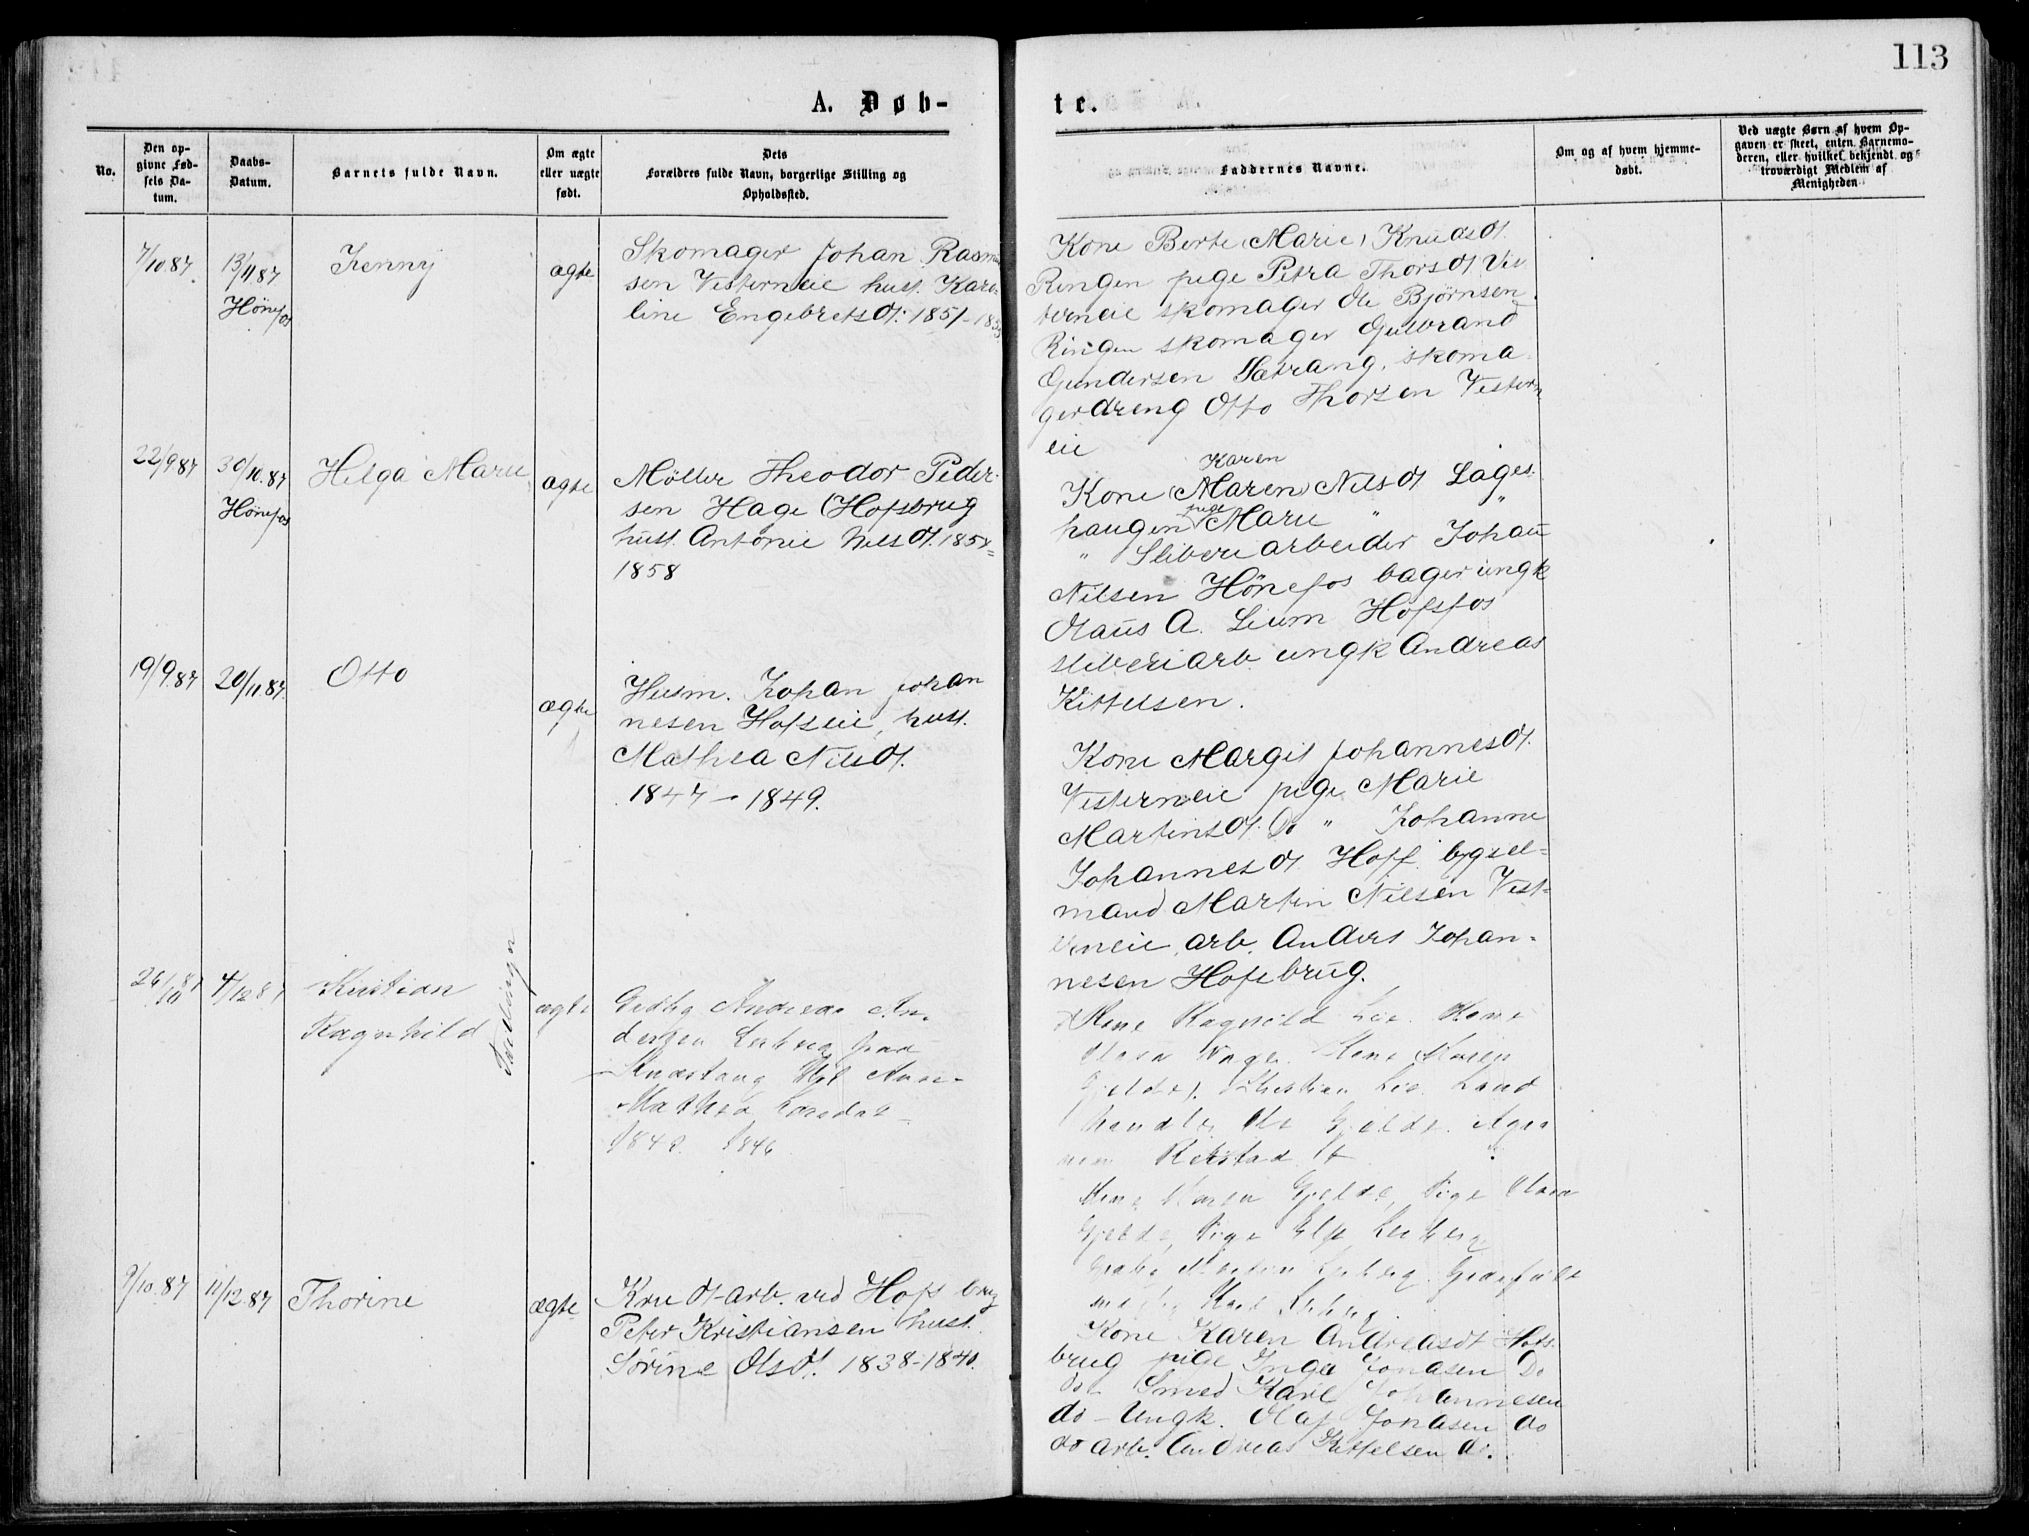 113
A. Døb-
te.
No.
Den op-
givne Fød-
sels Da-
tum.
Daabs-
Datum.
Barnets fulde Navn.
Om ægte
eller uægte
født.
Dets
Forældres fulde Navn, borgerlige Stilling og
Opholdssted.
Faddernes Navne.
Om og af hvem hjemme-
døbt.
Ved uægte Børn af hvem Op-
gaven er skeet, enten Barnemo-
deren, eller hvilket bekjendt og
troværdigt Medlem af
Menigheden
7/10.87
13/11 87
Hönefos
Jenny
ægte
Skomager Johan Rasmus
sen Vesterneie hust. Karo-
line Engebretsdt: 1851-
Kone Berte Marie Knudsdt.
Ringen pige Petra Thorsdt Ves
terneie skomager Ole Björnsen
Ringen skomager Gulbrand
Gundersen Sætrang, skoma
gerdreng Otto Thorsen Vestern
eie
22/9 87
30/10.87
Hönefos
Helga Marie
ægte
Møller Theodor Peder-
sen Hage (Hofsbrug
hust. Antonie Nilsdt.
1858
Karen
Kone (Maren) Nilsdt Lages-
haugen pige Marie "
" Sliberiarbeider Johan
Nilsen Hönefos bager ungk
Olaus A. Lium Hofsfos
sliberiarb ungk Andreas
Kittelsen.
19/9.87
20/11 87.
Otto
ægte
Husm. Johan Johan
nesen Hofseie, hust.
Mathea Nilsdt.
1847 – 1849.
Kone Margit Johannesdt.
Vesterneie pige Marie
Martinsdt. Do " Johanne
Johannesdt. Hoff bygsel-
mand Martin Nilsen Vest-
erneie, arb. Anders Johan-
nesen Hofsbrug.
26/10 87
4/12 87
Kristian
Ragnhild
Tvillinger
ægte
Gbrbg Andreas An-
dersen
Mathea Larsdat
1842. 1846
Kone Ragnhild Lie. Kone
Kone Karen
Gjelde, Kristian Lie. Land
handler Ole Gjelde.
Kone Karen Gjelde, Pige Olava
Gjelde, Pige
9/10.87
11/12.87
Thorine
ægte
Krudt-arb. ved Hofs brug
Peter Kristiansen hust.
Sörine Olsdt. 1838-1840.
Kone Karen Andreasdt Hofs
brug pige Inga Jonasen Do
do Smed Karl Johannesen
do – Ungk. Olaf Jonasen do
do arb. Andreas Kittelsen do.